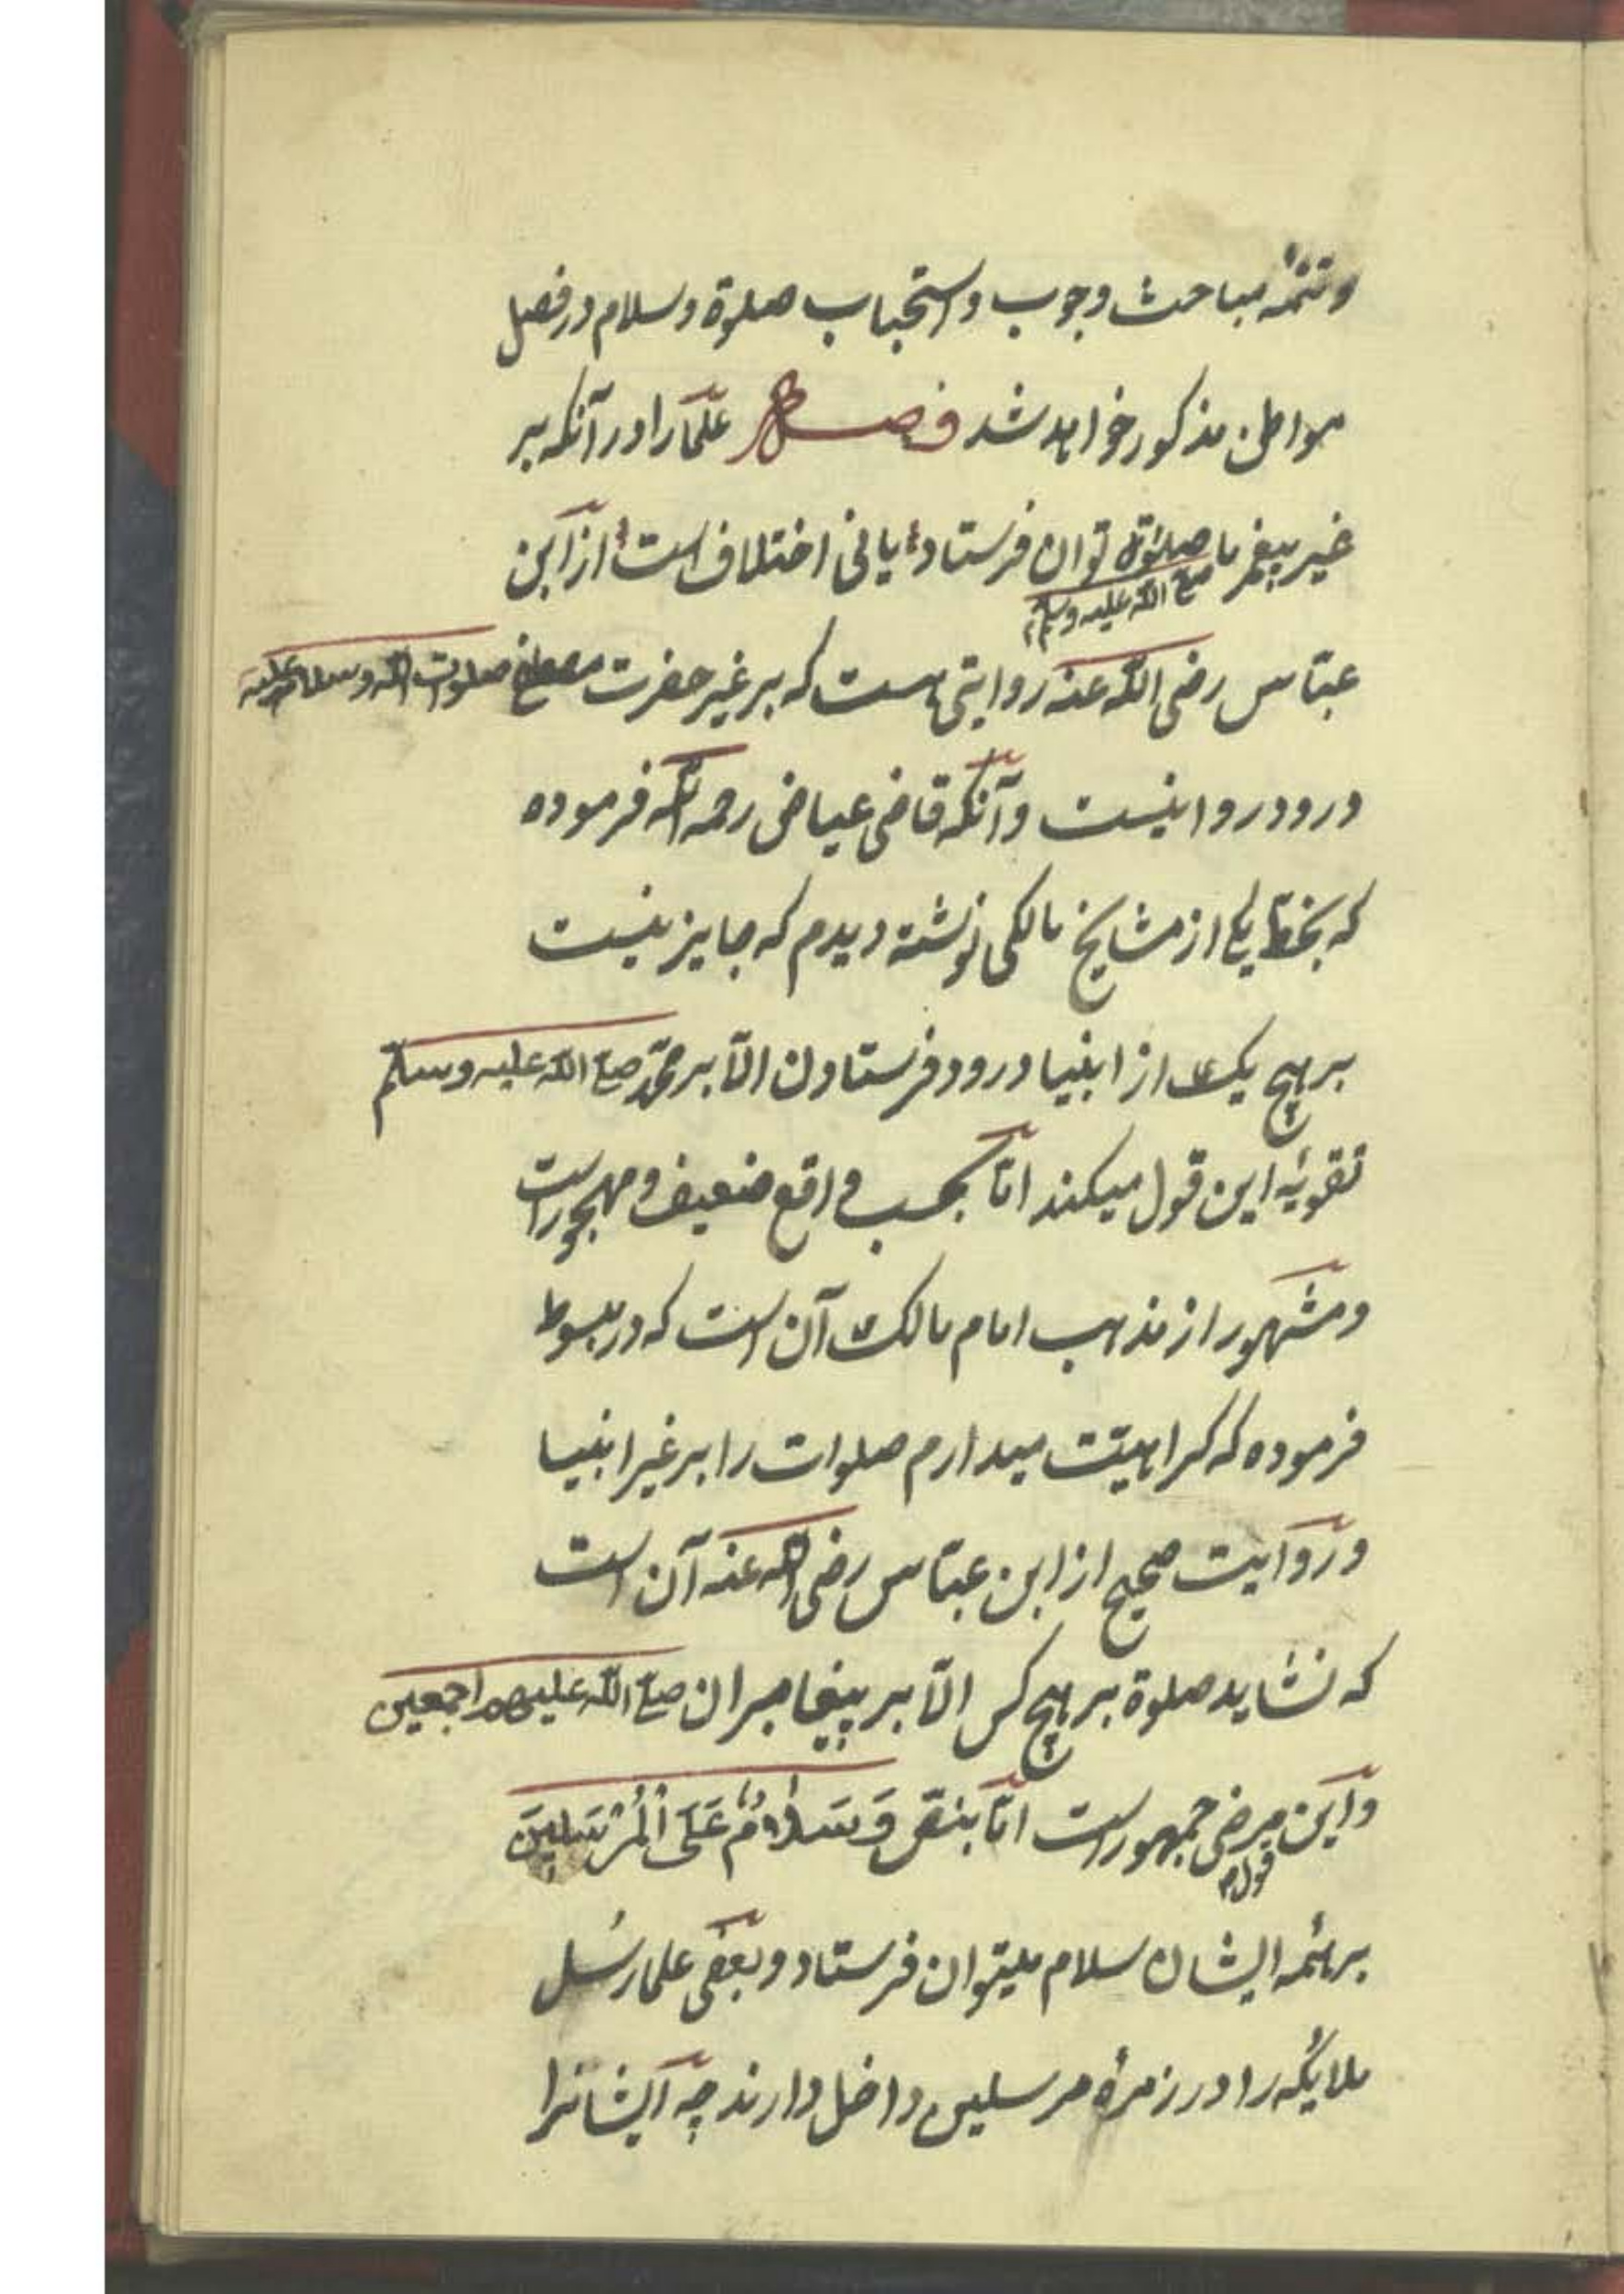 و تتمهٔ مباحث وجوب و استحباب صلوة و سلام در فصل
مواطن مذکور خواهد شد فصل علما را در آنکه بر
غیر پیغمبر ما صلوة توان فرستاد یا نی اختلاف است از ابن
صلی الله علیه وسلم
عباس رضی الله عنه روایتی هست که بر غیر حضرت مصطفی صلوات الله وسلامه علیه
درود روا نیست و آنکه قاضی عیاض رحمه الله فرموده
که بخط یکی از مشایخ مالکی نوشته دیدم که جایز نیست
بر هیچ یک از انبیا درود فرستادن الّا بر محمّد صلی الله علیه وسلم
تقویهٔ این قول میکند امّا بحسب واقع ضعیف و مهجورست
و مشهور از مذهب امام مالک آن است که در مبسوط
فرموده که کراهیّت میدارم صلوات را بر غیر انبیا
و روایت صحیح از ابن عبّاس رضی الله عنه آن است
که نشاید صلوة بر هیچ کس الّا بر پیغامبران صلی الله علیهم اجمعین
و این مرضی جمهورست امّا بنصّ وَسَلَامٌ عَلَی الْمُرْسَلِینَ
قول
بر همه ایشان سلام میتوان فرستاد و بعضی علما رُسل
ملایکه را در زمرهٔ مرسلین داخل دارند چه ایشانرا